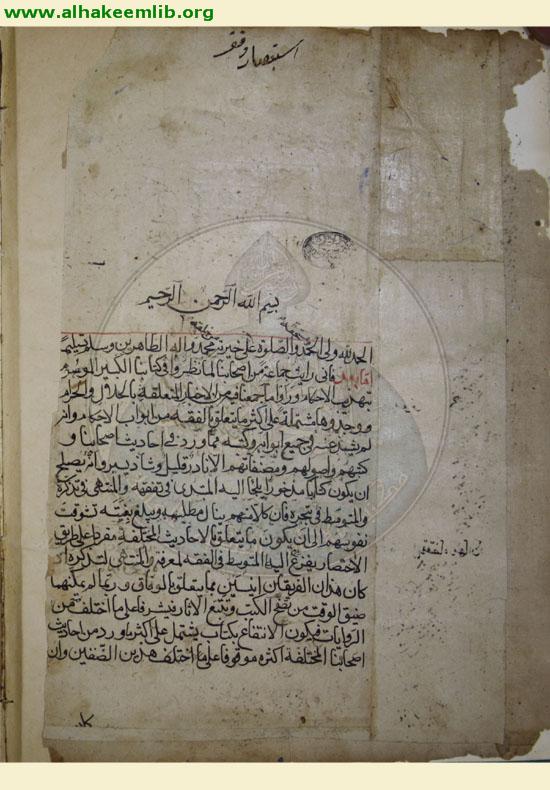 www.alhakeemlib.org
استبصار وقف
بسم الله الرحمن الرحيم
الحمد لله ولي الحمد والصلوة على خيرته محمد واله الطاهرين وسلم تسليما
فاني رايت جماعة من اصحابنا لما نظروا في كتابنا الكبير الموسوم
بتهذيب الاحكام وراوا ما جمعنا فيه من الاخبار المتعلقة بالحلال والحرام
ووجدوها مشتملة على اكثر ما يتعلق بالفقه من ابواب الاحكام وانه
لم يشذ عنه في جميع ابوابه وكتبه مما ورد في احاديث اصحابنا و
كتبهم واصولهم ومصنفاتهم الا نادر قليل وشاذ يسير وانه يصلح
ان يكون كتابا مذخورا يلجأ اليه المبتدي في تفقهه والمنتهي في تذكره
والمتوسط في تبحره فان كلا منهم ينال مطلبه ويبلغ بغيته تشوقت
نفوسهم الى ان يكون ما يتعلق بالاحاديث المختلفة مفردا على طريق
الاختصار يفزع اليه المتوسط في الفقه لمعرفته والمنتهي لتذكره اذ
كان هذان الفريقان انيسين مما يتعلق بالوفاق وربما لم يمكنهما
ضيق الوقت من تصفح الكتب وتتبع الاثار فيشرفا على ما اختلف من
الروايات فيكون الانتفاع بكتاب يشتمل على اكثر ما ورد من احاديث
اصحابنا المختلفة اكثره موقوفا على ما اختلف هذين الصنفين وان